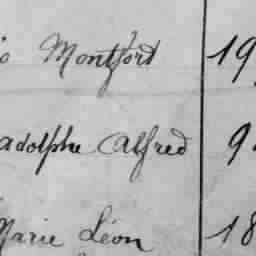 Montford 19
adolphe Alfred 9
Marie Léon 18